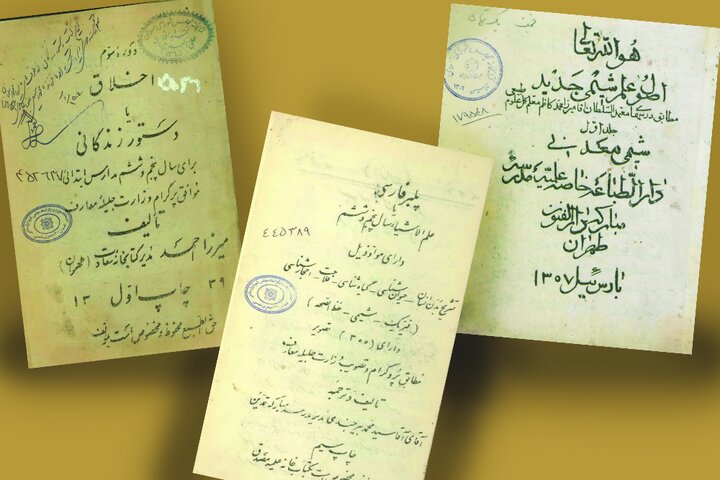 دورهٔ سوم
اخلاق
یا
دستور زندگانی
برای سال پنجم و ششم مدارس ابتدائی
موافق پروگرام وزارت جلیلهٔ معارف
تألیف
میرزا احمد مدیر کتابخانه سعادت (طهران)
۱۳ چاپ اول ۳۹
حق الطبع محفوظ و مخصوص است بمؤلف
پلیر فارسی
یا
علم الاشیاء سال پنجم و ششم
۴۴۵۳۸۹
دارای مواد ذیل
تشریح بدن انسان حیوان شناسی گیاه شناسی فلاحت احجار شناسی
(فیزیک شیمی حفظ الصحه)
دارای (۳۰۰) تصویر
مطابق پروگرام و تصویب وزارت جلیله معارف
تألیف و ترجمه
آقای آقا سید محمد بیرجندی مدیر مدرسه مبارکه تمدین
چاپ سیم
هو الله تعالی
اصول علم شیمی جدید
۱۷۹۵۴۸
جلد اول
شیمی معدنی
دار الطباعه خاصه علمیه مدرسه
مبارکه دار الفنون
طهران
بارس ئیل ۱۳۰۷